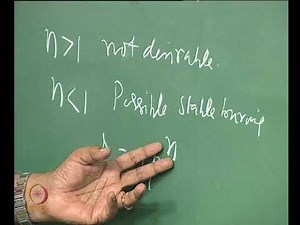 n>1 not desirable.
n<1 Possible stable burning
n